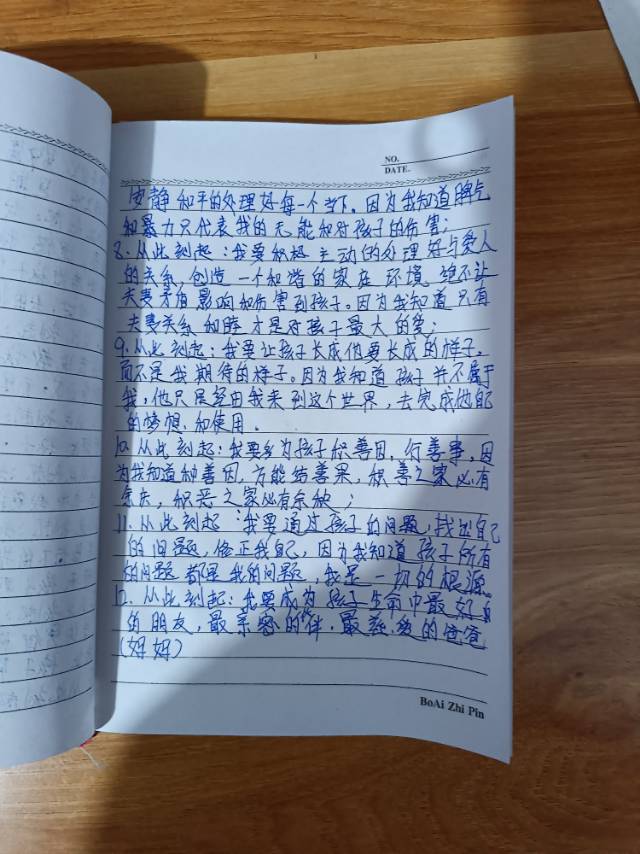 NO.
DATE.
安静和平的处理好每一个当下。因为我知道脾气
和暴力只代表我的无能和对孩子的伤害;
8.从此刻起:我要积极主动的处理好与爱人
的关系,创造一个和谐的家庭环境,绝不让
夫妻矛盾影响和伤害到孩子。因为我知道只有
夫妻关系和睦才是对孩子最大的爱;
9.从此刻起:我要让孩子长成他要长成的样子,
而不是我期待的样子。因为我知道孩子并不属于
我,他只是经由我来到这个世界,去完成他自己
的梦想和使用。
10.从此刻起:我要多为孩子积善因,行善事,因
为我知道种善因,方能结善果,积善之家必有
余庆,积恶之家必有余殃;
11.从此刻起:我要通过孩子的问题,找出自己
的问题,修正我自己,因为我知道孩子所有
的问题都是我的问题,我是一切的根源。
12.从此刻起:我要成为孩子生命中最好的
的朋友,最亲密的伙伴,最慈爱的爸爸
(妈妈)
BoAi Zhi Pin